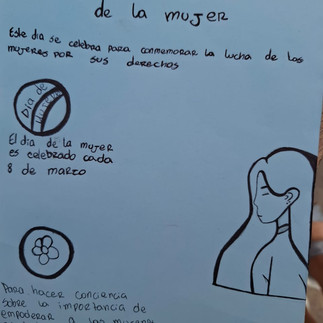 de la mujer
Este día se celebra para conmemorar la lucha de las
mujeres por sus derechos
Día de
la mujer
El día de la mujer
es celebrado cada
8 de marzo
Para hacer conciencia
sobre la importancia de
empoderar a las mujeres